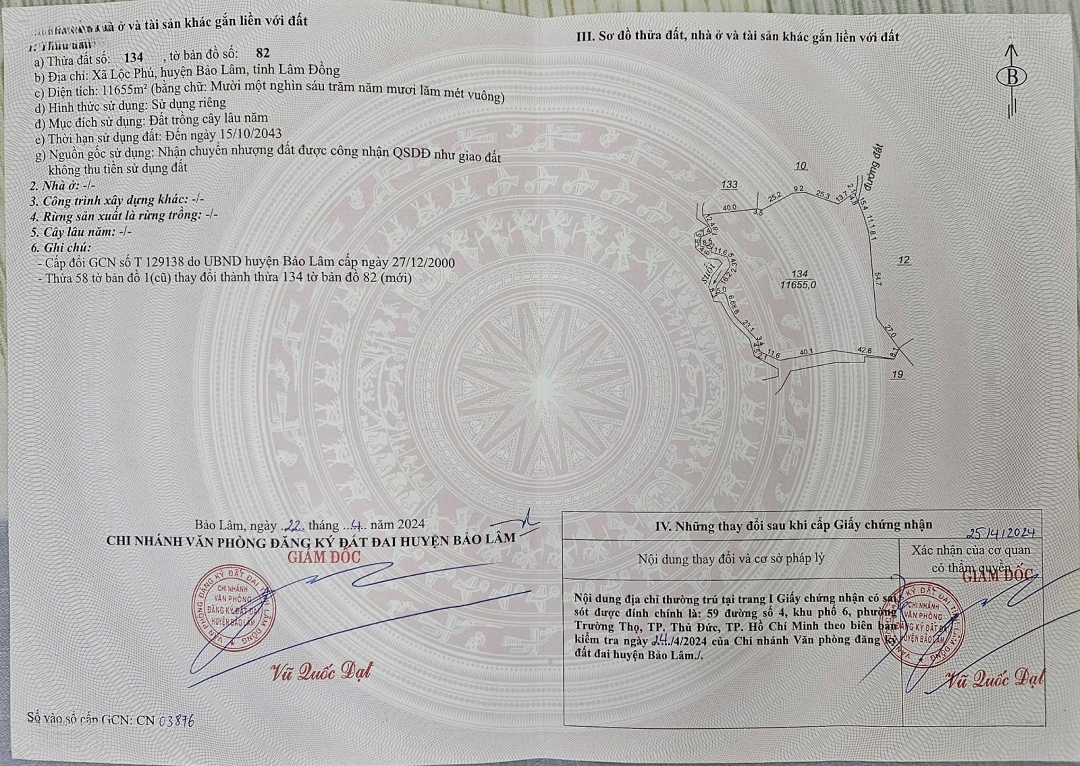 ở và tài sản khác gắn liền với đất
a) Thửa đất số: 134 , tờ bản đồ số: 82
b) Địa chỉ: Xã Lộc Phú, huyện Bảo Lâm, tỉnh Lâm Đồng
c) Diện tích: 11655m² (bằng chữ: Mười một nghìn sáu trăm năm mươi lăm mét vuông)
d) Hình thức sử dụng: Sử dụng riêng
đ) Mục đích sử dụng: Đất trồng cây lâu năm
e) Thời hạn sử dụng đất: Đến ngày 15/10/2043
g) Nguồn gốc sử dụng: Nhận chuyển nhượng đất được công nhận QSDĐ như giao đất
không thu tiền sử dụng đất
2. Nhà ở: -/-
3. Công trình xây dựng khác: -/-
4. Rừng sản xuất là rừng trồng: -/-
5. Cây lâu năm: -/-
6. Ghi chú:
- Cấp đổi GCN số T 129138 do UBND huyện Bảo Lâm cấp ngày 27/12/2000
- Thửa 58 tờ bản đồ 1(cũ) thay đổi thành thửa 134 tờ bản đồ 82 (mới)
Bảo Lâm, ngày 22 tháng 4 năm 2024
CHI NHÁNH VĂN PHÒNG ĐĂNG KÝ ĐẤT ĐAI HUYỆN BẢO LÂM
GIÁM ĐỐC
VĂN PHÒNG ĐĂNG KÝ ĐẤT ĐAI TỈNH LÂM ĐỒNG
CHI NHÁNH
VĂN PHÒNG
ĐĂNG KÝ ĐẤT ĐAI
HUYỆN BẢO LÂM
Vũ Quốc Đạt
Số vào sổ cấp GCN: CN 03876
III. Sơ đồ thửa đất, nhà ở và tài sản khác gắn liền với đất
B
10
đường đất
133
40.0
3.5
25.2
9.2
25.3
13.7
15.4
11.1
8.1
12
134
11655,0
54.7
suối
11.6
16.2
23.1
3.4
27.0
11.6
40.1
42.6
8.7
19
IV. Những thay đổi sau khi cấp Giấy chứng nhận
25/4/2024
Nội dung thay đổi và cơ sở pháp lý
Xác nhận của cơ quan
có thẩm quyền
GIÁM ĐỐC
Nội dung địa chỉ thường trú tại trang I Giấy chứng nhận có sai
sót được đính chính là: 59 đường số 4, khu phố 6, phường
Trường Thọ, TP. Thủ Đức, TP. Hồ Chí Minh theo biên bản
kiểm tra ngày 24/4/2024 của Chi nhánh Văn phòng đăng ký
đất đai huyện Bảo Lâm./.
CHI NHÁNH
VĂN PHÒNG
ĐĂNG KÝ ĐẤT ĐAI
HUYỆN BẢO LÂM
Vũ Quốc Đạt